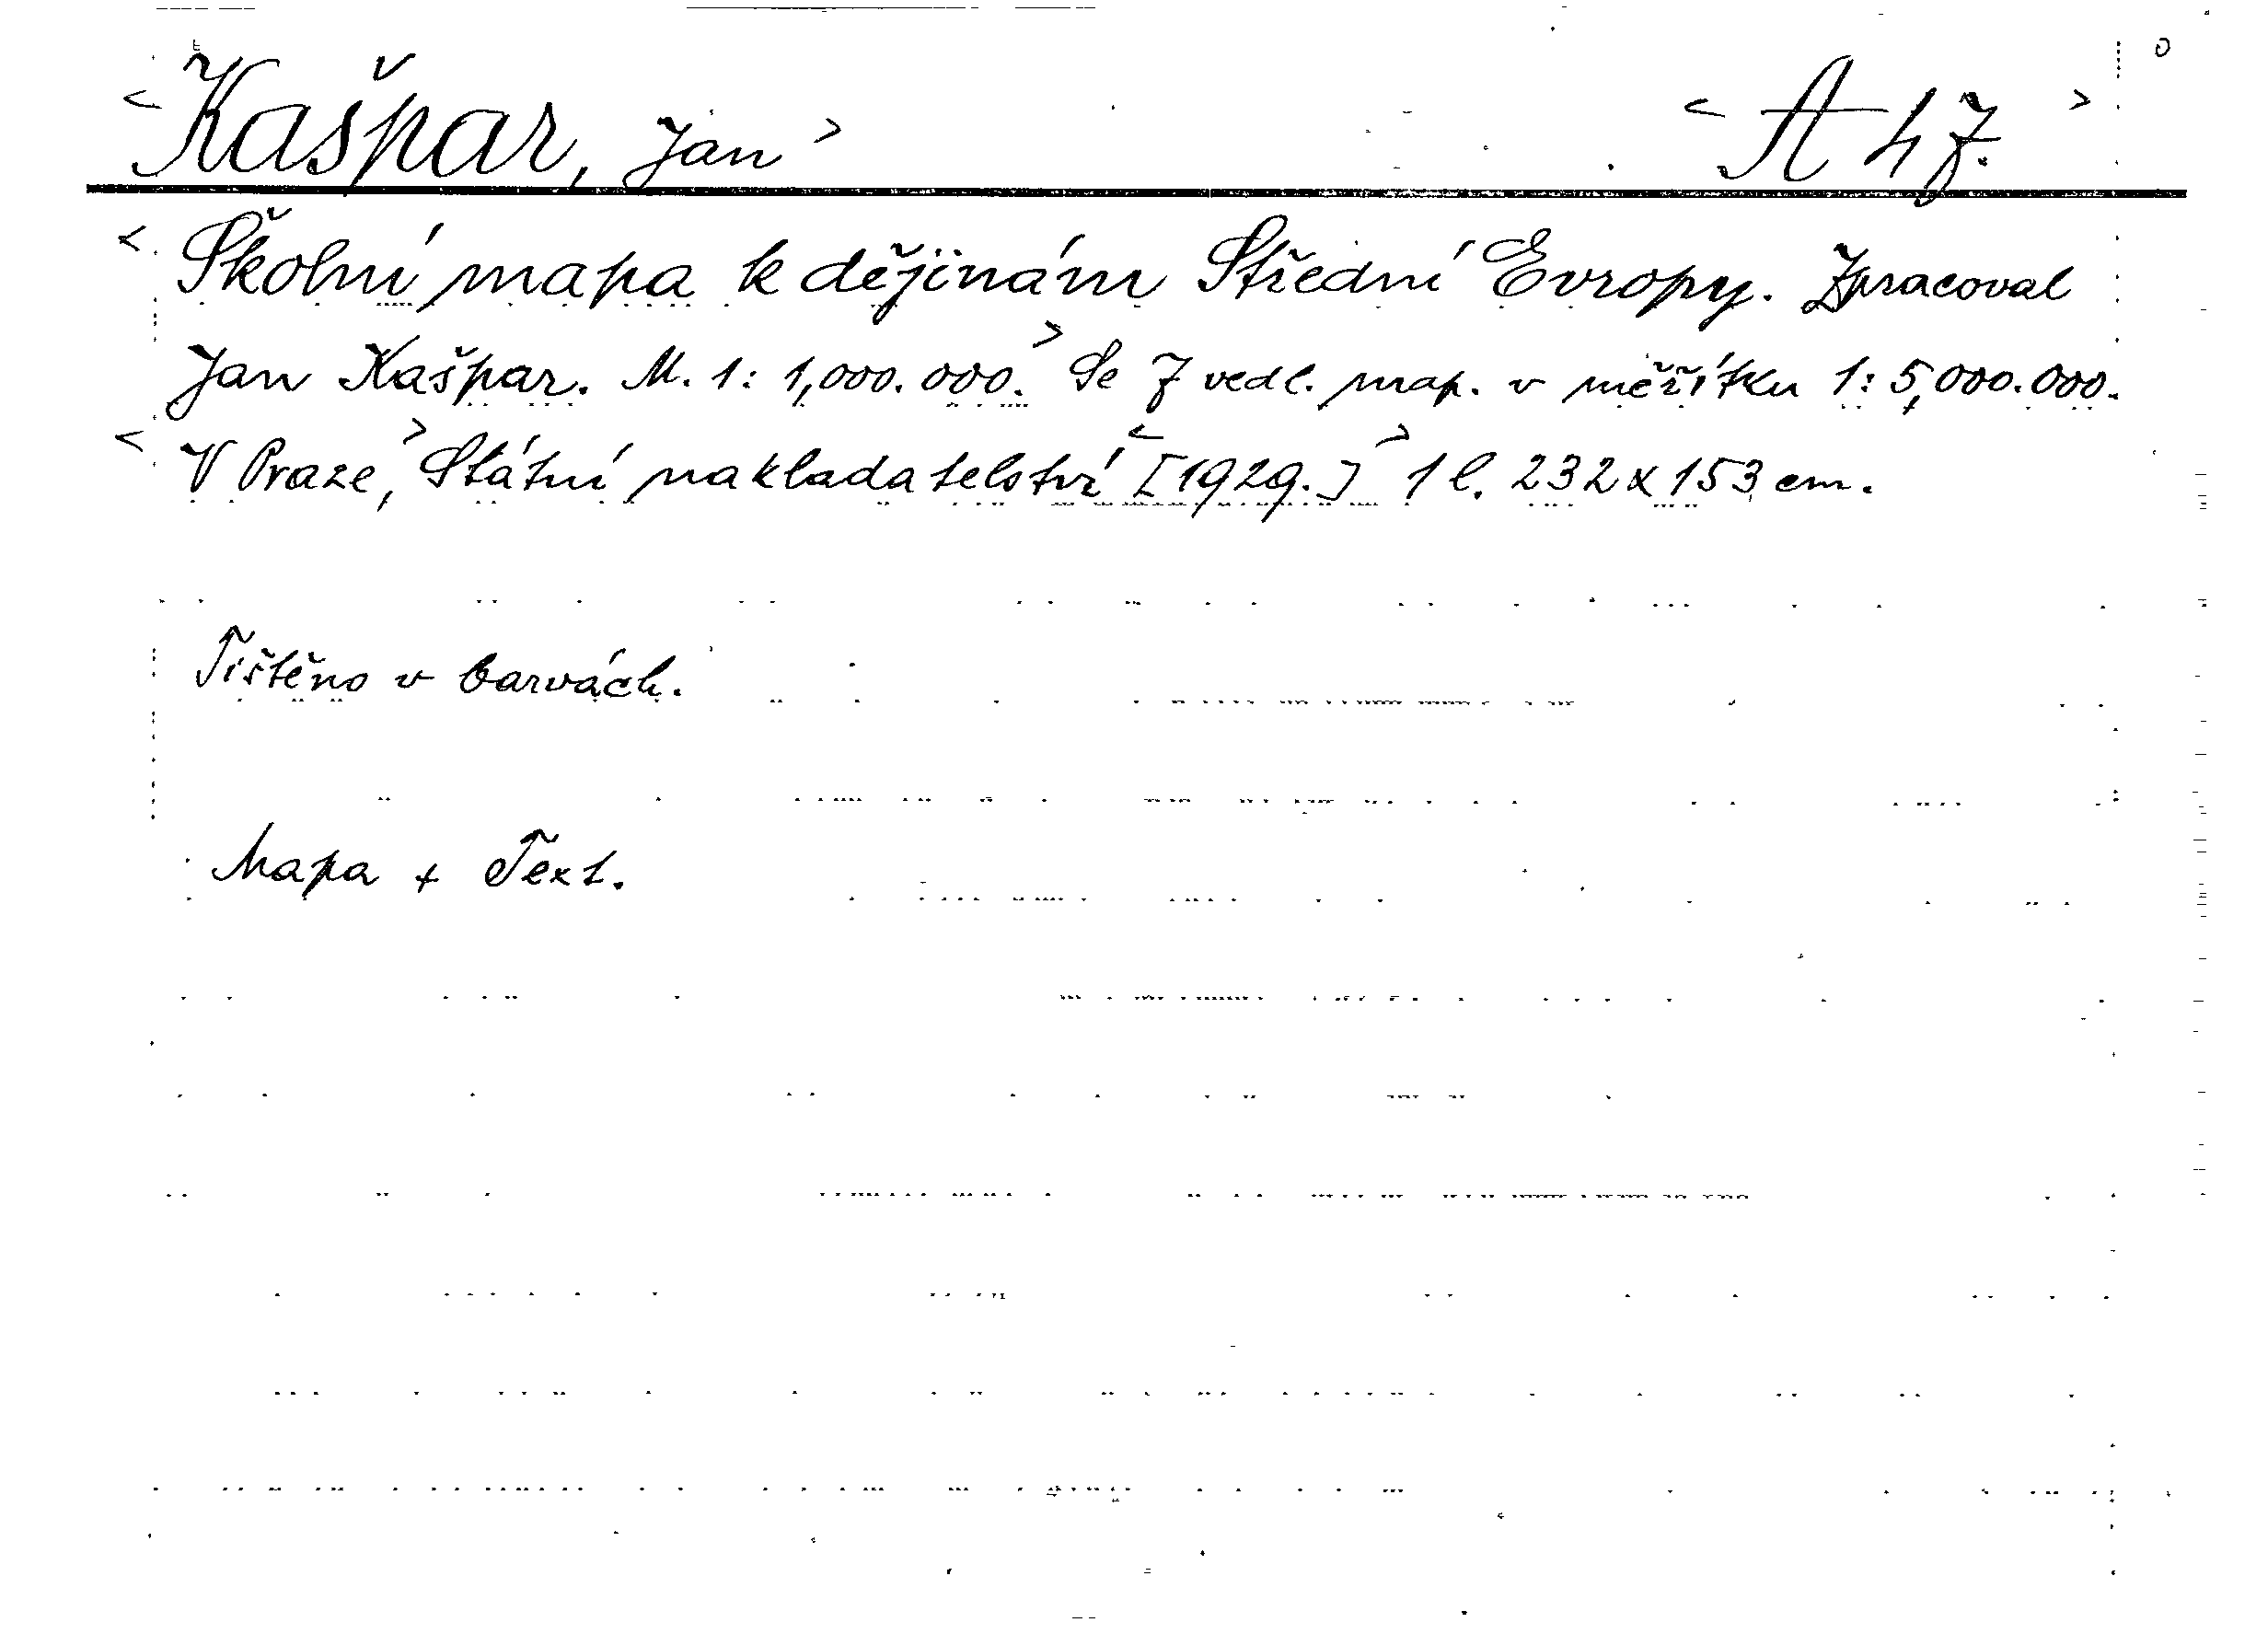 <Kašpar, Jan> <A 47.>
<Školní mapa k dějinám Střední Evropy. Zpracoval
Jan Kašpar. M. 1: 1,000.000.> Se 7 vedl. map. v měřítku 1: 5,000.000.
<V Praze,> Státní nakladatelství <[1929.]> 1 l. 232 x 153 cm.
Tištěno v barvách.
Mapa + Text.